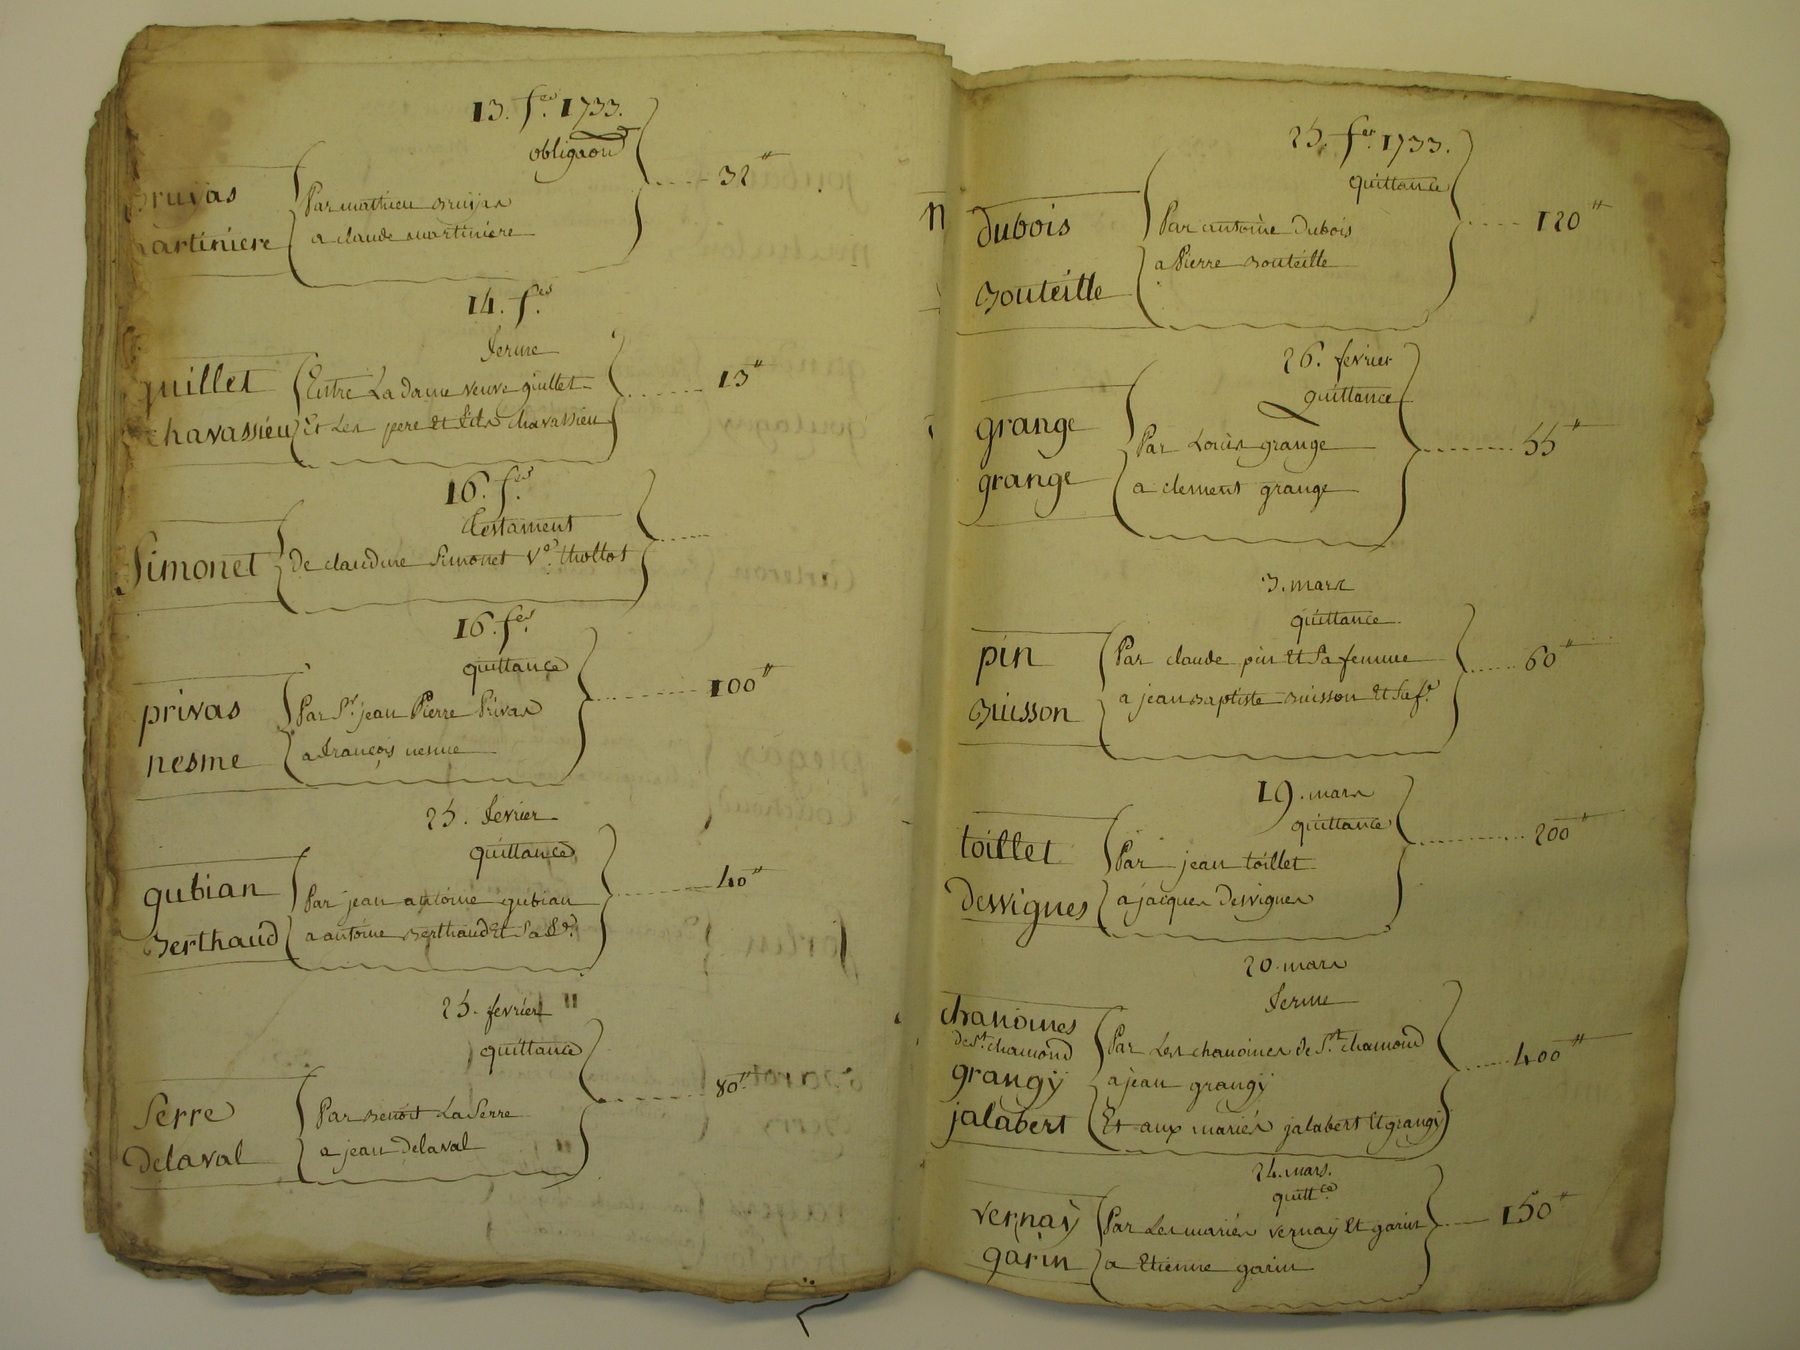 13. f.er 1733.
obligaon
Bruyas
Par mathieu Bruyas
32"
martiniere
a claude martiniere
14. f.er
ferme
guillet
Entre La dame veuve guillet
13"
chavassieu
Et Les pere Et fils chavassieu
16. f.er
testament
Simonet
de claudine Simonet Ve. thollot
16. f.er
quittance
privas
Par Sr. jean Pierre Privas
100"
nesme
a françois nesme
25. fevrier
quittance
gubian
Par jean antoine gubian
40"
Berthaud
a antoine Berthaud Et Sa
25. fevrier "
quittance
Serre
Par Benoit La Serre
80"
delaval
a jean delaval
25. fer 1733.
quittance
dubois
Par antoine Dubois
120"
Bouteille
a Pierre Bouteille
26. fevrier
quittance
grange
Par Louis grange
55"
grange
a clement grange
3. mars
quittance
pin
Par claude pin Et Sa femme
60"
Buisson
a jean Baptiste Buisson Et Sa fe
19. mars
quittance
toillet
Par jean toillet
200"
desvignes
a jacques Desvignes
20. mars
ferme
chanoines
de St. chamond
Par Les chanoines de St. chamond
400"
grangy
a jean grangy
jalabert
Et aux mariés jalabert Et grangy
24. mars.
quittce
vernay
Par Les mariés vernay Et garin
150"
garin
a Etienne garin